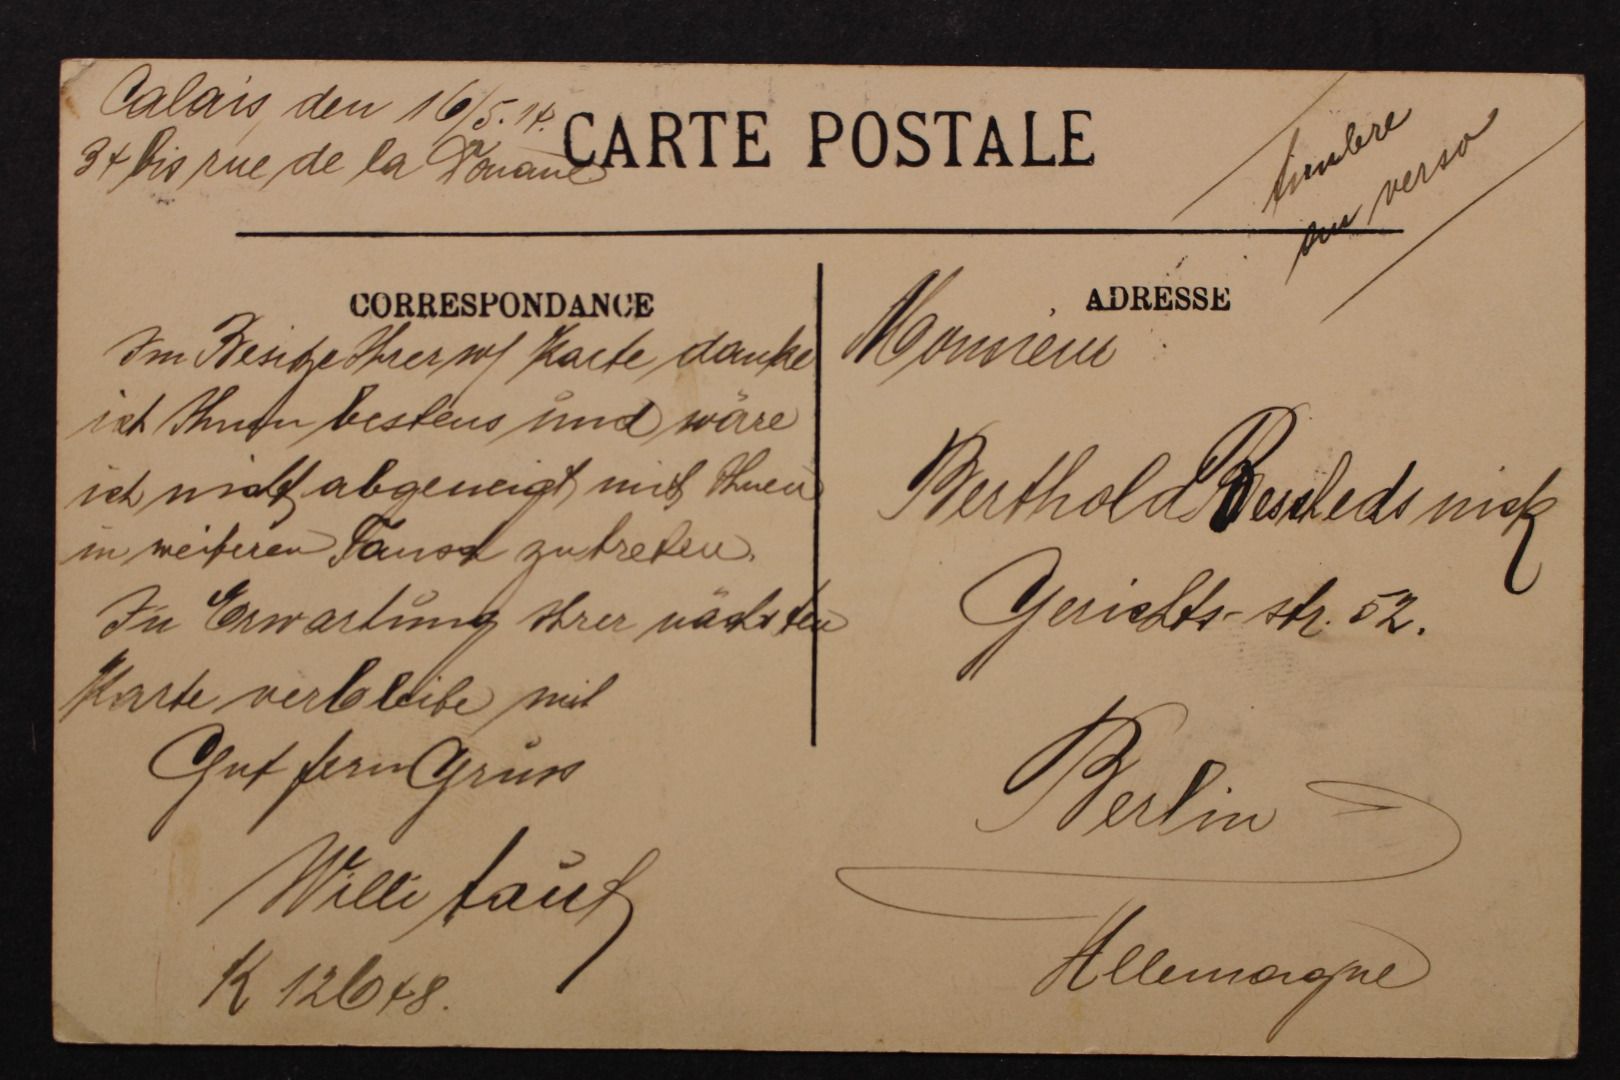 Calais, den 16/5.14.
34 bis rue de la Douane
CARTE POSTALE
timbre
au verso
CORRESPONDANCE
Im Besitze Ihrer w/ Karte danke
ich Ihnen bestens und wäre
ich nicht abgeneigt mit Ihnen
in weiteren Tausch zu treten.
In Erwartung Ihrer nächsten
Karte verbleibe mit
Gut fern Gruss
Willi
K 12648.
ADRESSE
Monsieur
Berthold
Gerichts-str. 52.
Berlin
Allemagne